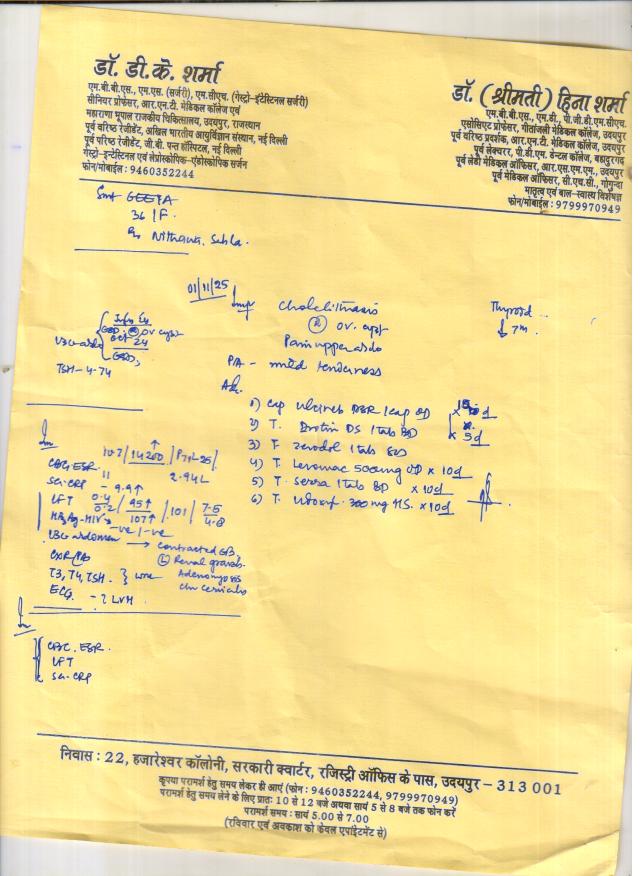 डॉ. डी.के. शर्मा
एम.बी.बी.एस., एम.एस. (सर्जरी), एम.सीएच. (गेस्ट्रो-इंटेस्टिनल सर्जरी)
सीनियर प्रोफेसर, आर.एन.टी. मेडिकल कॉलेज एवं
महाराणा भूपाल राजकीय चिकित्सालय, उदयपुर, राजस्थान
पूर्व वरिष्ठ रेजीडेंट, अखिल भारतीय आयुर्विज्ञान संस्थान, नई दिल्ली
पूर्व वरिष्ठ रेजीडेंट, जी.बी. पन्त हॉस्पिटल, नई दिल्ली
गेस्ट्रो-इन्टेस्टिनल एवं लेप्रोस्कोपिक-एंडोस्कोपिक सर्जन
फोन/मोबाईल : 9460352244
डॉ. (श्रीमती) हिना शर्मा
एम.बी.बी.एस., एम.डी., पी.जी.डी.एम.सीएच.
एसोसिएट प्रोफेसर, गीतांजली मेडिकल कॉलेज, उदयपुर
पूर्व वरिष्ठ प्रदर्शक, आर.एन.टी. मेडिकल कॉलेज, उदयपुर
पूर्व लेक्चरर, पी.डी.एम. डेन्टल कॉलेज, बहादुरगढ़
पूर्व लेडी मेडिकल ऑफिसर, आर.एस.एम.एम., उदयपुर
पूर्व मेडिकल ऑफिसर, सी.एच.सी., गोगुन्दा
मातृत्व एवं बाल-स्वास्थ्य विशेषज्ञ
फोन/मोबाईल : 9799970949
Smt GEETA
36 / F.
01/11/25
Cholelithiasis
Thyroid
(R) ov. cyst
7m.
Pain upper abdo
P/A - mild tenderness
Adv.
TSH - 4.74
1) Cap DSR 1 cap OD
2) T. DS 1 tab BD
x 5d
3) T. Zerodol 1 tab
4) T. 500mg OD x 10d
5) T. 1 tab BD x 10d
6) T. 300mg HS. x 10d
Inv
CBC. ESR 10.7 / 14200
2.94L
Se. CRP - 9.9↑
LFT 0.4 / 0.2 95↑ / 107↑ 101 7.5
HBsAg - HIV -ve / -ve
USG abdomen → Contracted GB,
(L) Renal
CXR/PA Adenomyosis
T3, T4, TSH. } WNL
ECG - ? LVH
Inv
CBC. ESR.
LFT
Se. CRP
निवास : 22, हजारेश्वर कॉलोनी, सरकारी क्वार्टर, रजिस्ट्री ऑफिस के पास, उदयपुर – 313 001
कृपया परामर्श हेतु समय लेकर ही आएं (फोन : 9460352244, 9799970949)
परामर्श हेतु समय लेने के लिए प्रातः 10 से 12 बजे अथवा सायं 5 से 8 बजे तक फोन करें
परामर्श समय : सायं 5.00 से 7.00
(रविवार एवं अवकाश को केवल एपाइंटमेंट से)